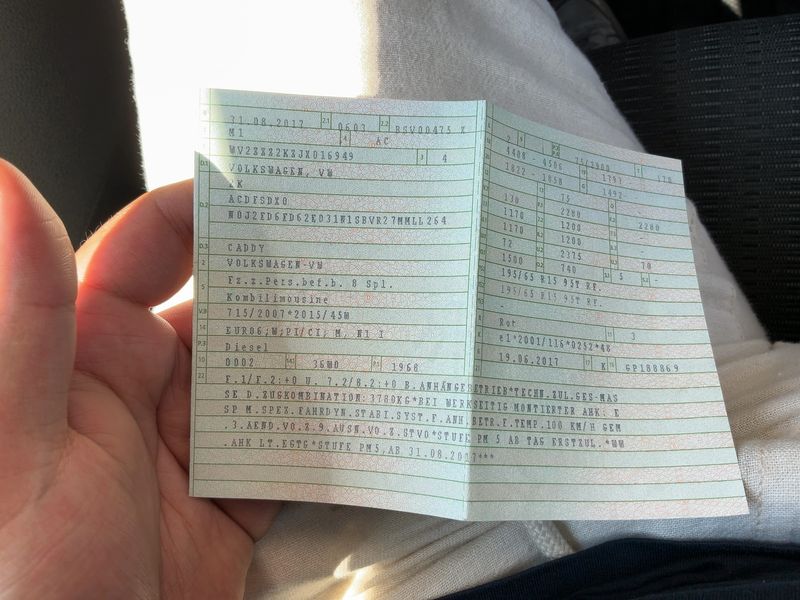 31.08.2017 2.1 0603 2.2 BSV00475 X
M1 4 AC
WV2ZZZ2KZJX016949 3 4
VOLKSWAGEN, VW
2K
ACDFSDX0
CADDY
VOLKSWAGEN-VW
Fz.z.Pers.bef.b. 8 Spl.
Kombilimousine
715/2007*2015/45W
EURO6;W;PI/CI; M, N1 I
Diesel
0002 36W0 1968
2 75/2900
4408 - 4506 1797 170
1822 - 1858 1492
130 75
1170 2280 2280
1170 1200
72 1200
1500 2375
740 5 70
195/65 R15 95T RF.
195/65 R15 95T RF.
-
Rot 3
e1*2001/116*0252*48
19.06.2017 K GP188869
F.1/F.2:+0 U. 7.2/8.2:+0 B.ANHÄNGEBETRIEB*TECHN.ZUL.GES-MAS
SE D.ZUGKOMBINATION:3780KG*BEI WERKSEITIG MONTIERTER AHK: E
SP M.SPEZ.FAHRDYN.STABI.SYST.F.ANH.BETR.F.TEMP.100 KM/H GEM
.3.AEND.VO.Z.9.AUSN.VO.Z.STVO*STUFE PM 5 AB TAG ERSTZUL.*WW
.AHK LT.EGTG*STUFE PM5,AB 31.08.2017***